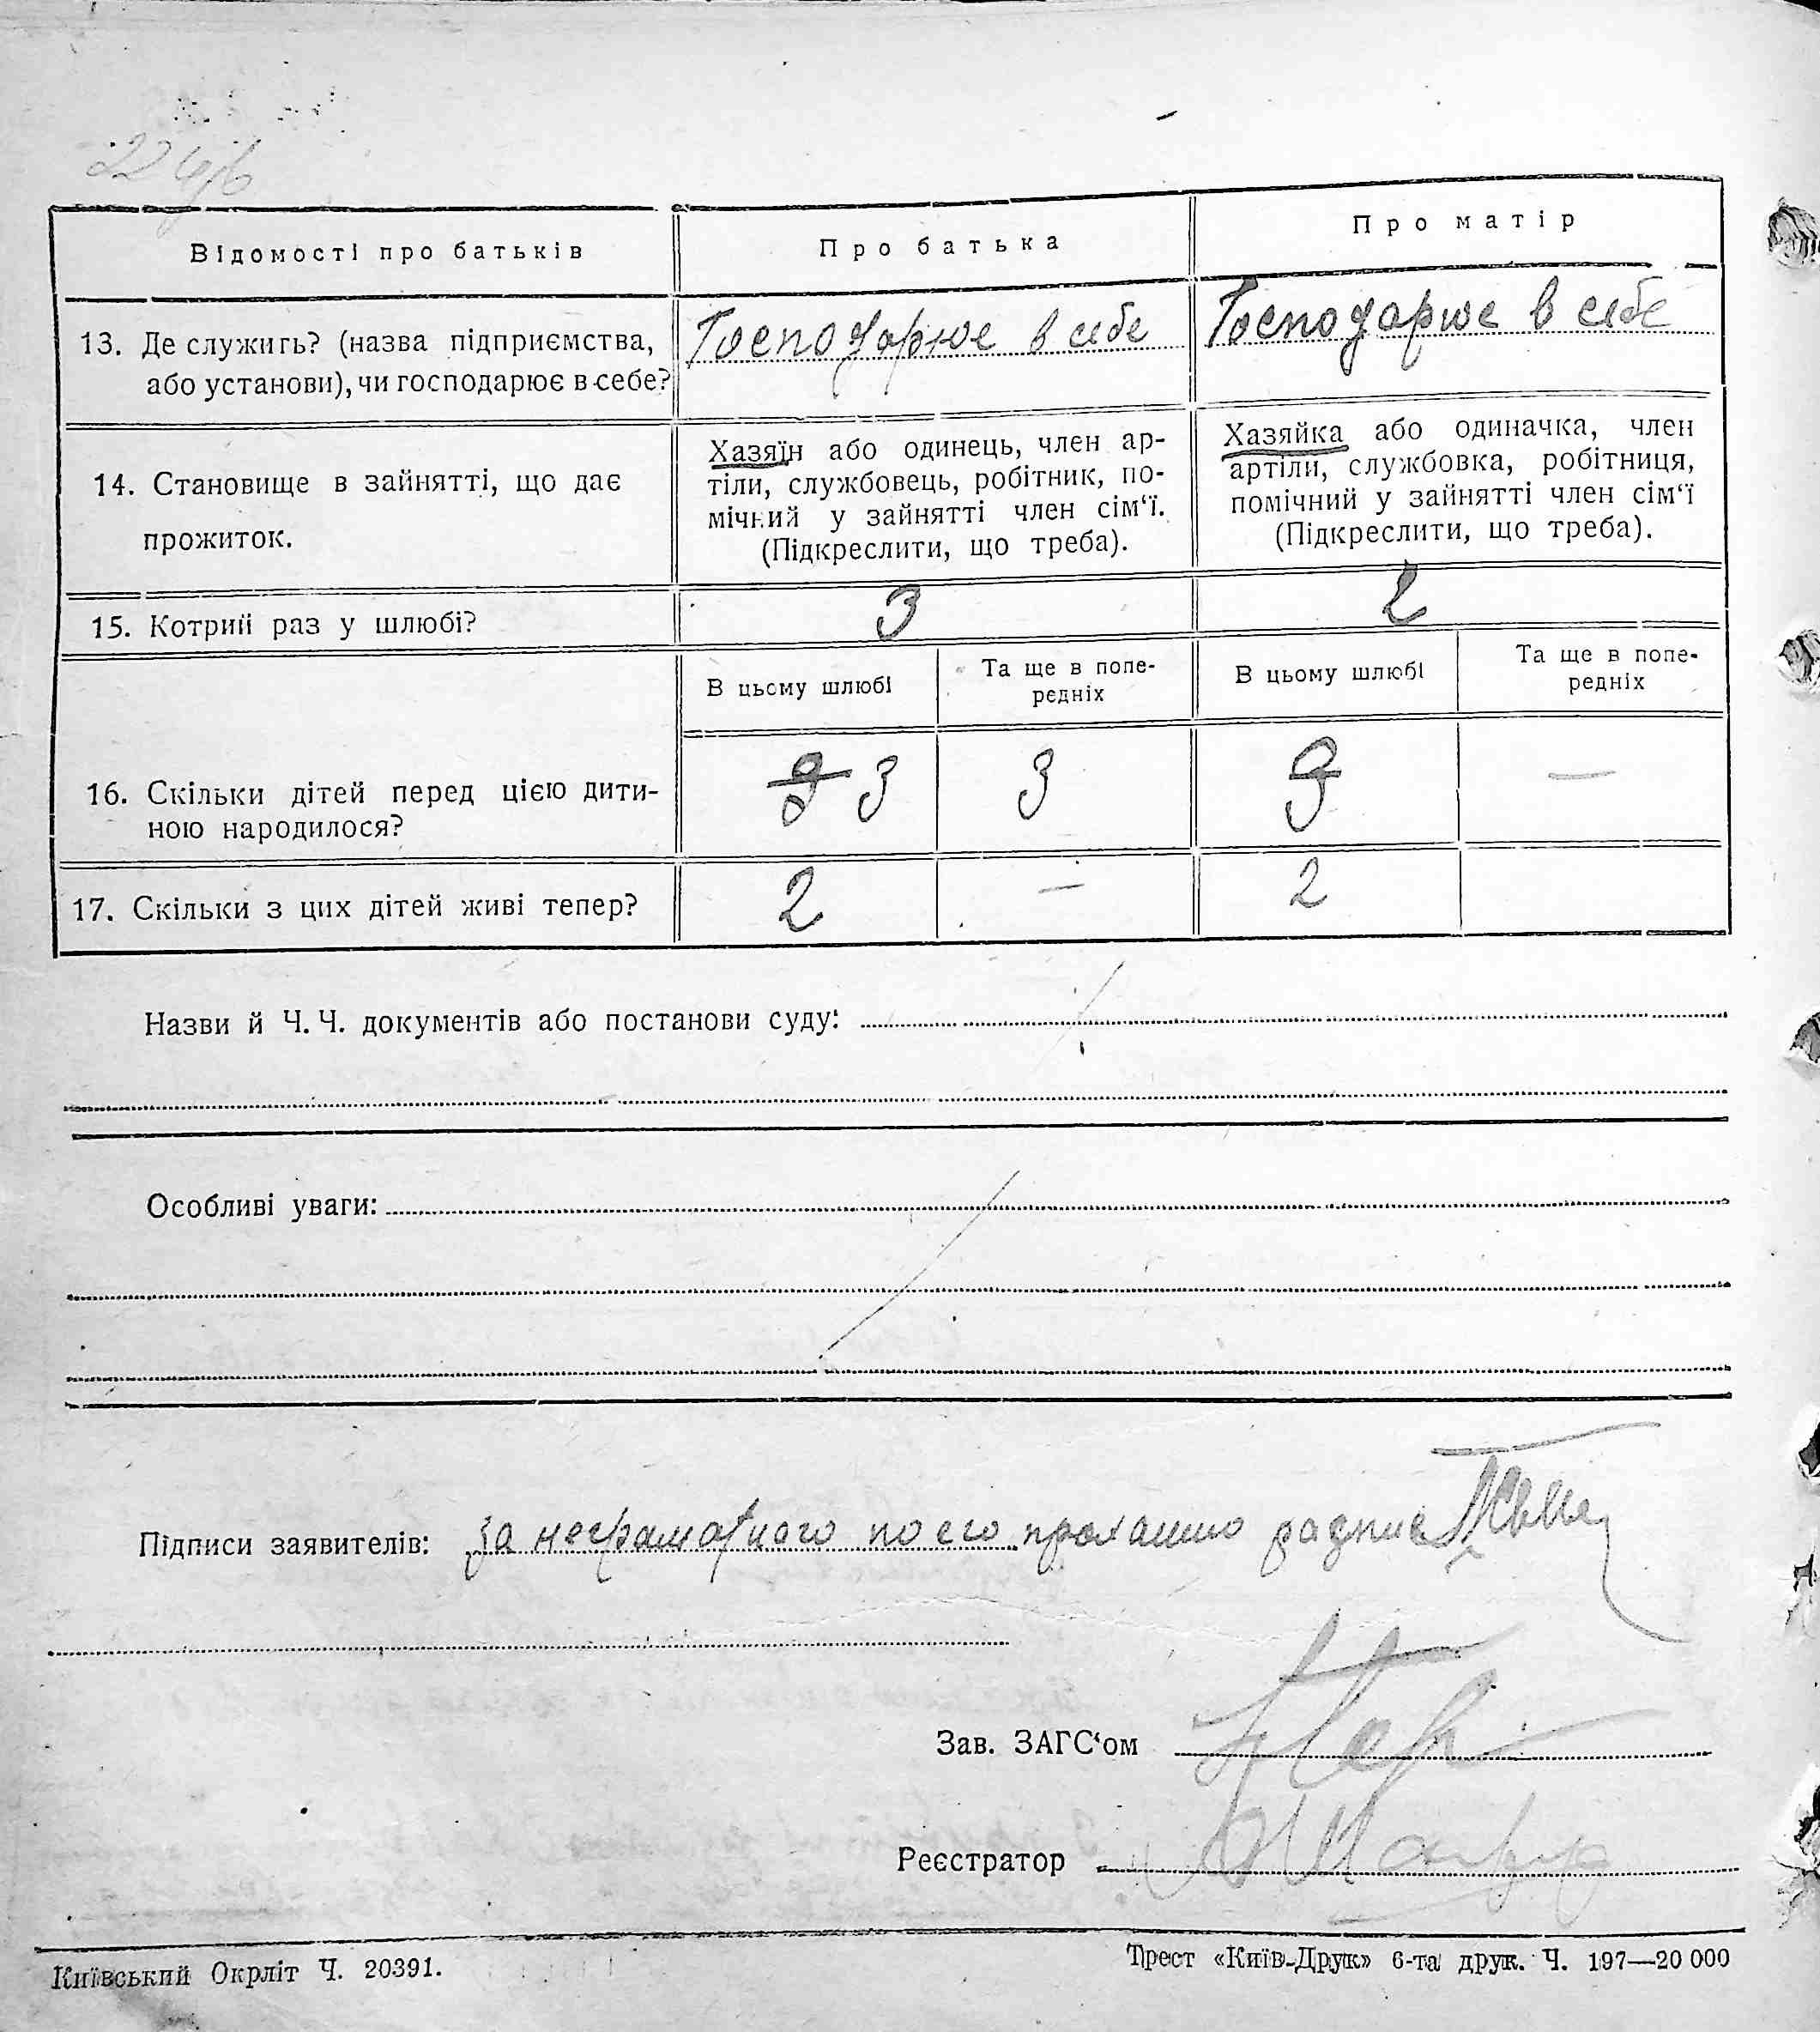 Відомості про батьків
Про батька
Про матір
13. Де служить? (назва підприємства,
або установи), чи господарює в себе?
Господарює в себе
Господарює в себе
14. Становище в зайнятті, що дає
прожиток.
Хазяїн або одинець, член ар-
тіли, службовець, робітник, по-
мічний у зайнятті член сім'ї.
(Підкреслити, що треба).
Хазяйка або одиначка, член
артіли, службовка, робітниця,
помічний у зайнятті член сім'ї
(Підкреслити, що треба).
15. Котрий раз у шлюбі?
3
2
В цьому шлюбі
Та ще в попе-
редніх
В цьому шлюбі
Та ще в попе-
редніх
16. Скільки дітей перед цією дити-
ною народилося?
3
3
3
—
17. Скільки з цих дітей живі тепер?
2
—
2
Назви й Ч. Ч. документів або постанови суду:
Особливі уваги:
Підписи заявителів: за неграмотного по его проханню
Зав. ЗАГС'ом
Реєстратор
Київський Окрліт Ч. 20391.
Трест «Київ-Друк» 6-та друк. Ч. 197—20 000